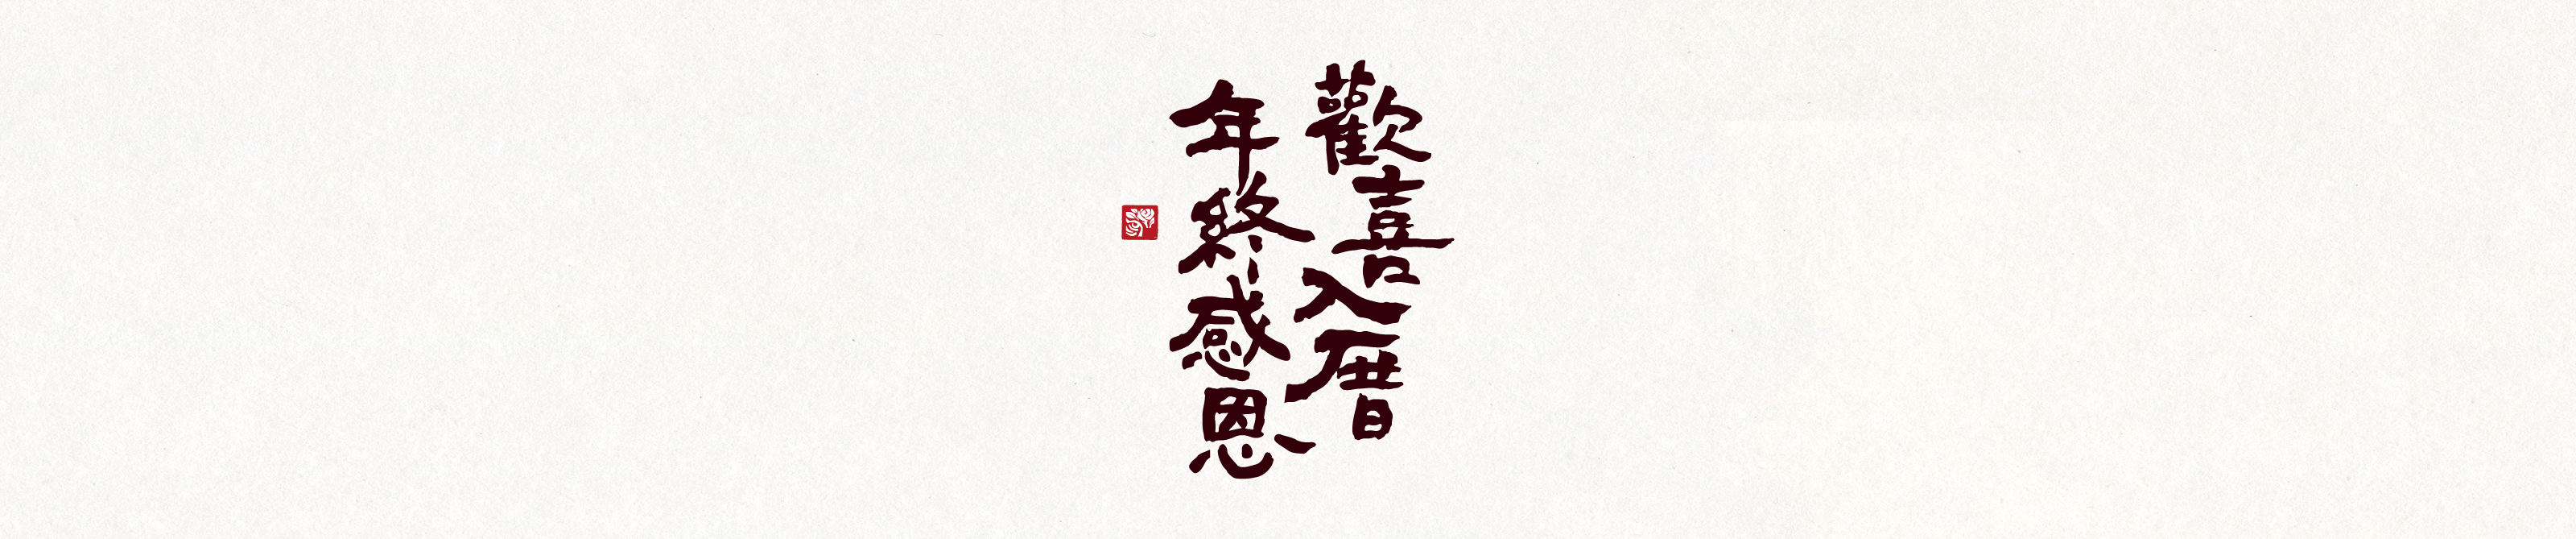 歡喜入厝
年終感恩